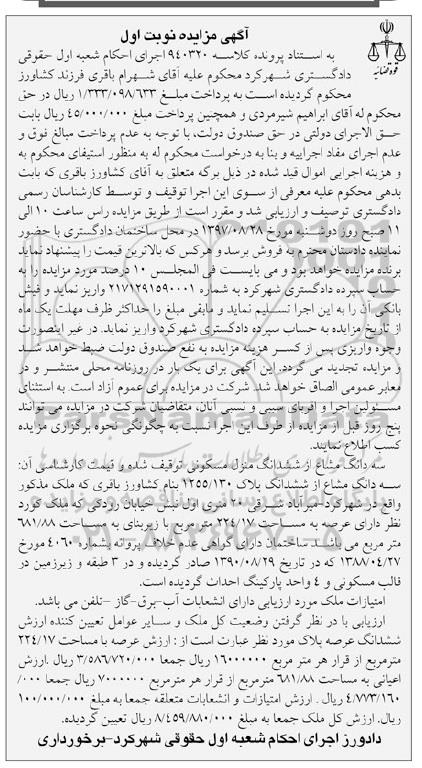 آگهی مزایده نوبت اول
قوه قضائیه
به استناد پرونده کلاسه ۹۴۰۳۲۰ اجرای احکام شعبه اول حقوقی
دادگستری شهرکرد محکوم علیه آقای شهرام باقری فرزند کشاورز
محکوم گردیده است به پرداخت مبلغ ۱/۳۳۳/۰۹۸/۶۳۳ ریال در حق
محکوم له آقای ابراهیم شیرمردی و همچنین پرداخت مبلغ ۴۵/۰۰۰/۰۰۰ ریال بابت
حق الاجرای دولتی در حق صندوق دولت، با توجه به عدم پرداخت مبالغ فوق و
عدم اجرای مفاد اجراییه و بنا به درخواست محکوم له به منظور استیفای محکوم به
و هزینه اجرایی اموال قید شده در ذیل برگه متعلق به آقای کشاورز باقری که بابت
بدهی محکوم علیه معرفی از سوی این اجرا توقیف و توسط کارشناسان رسمی
دادگستری توصیف و ارزیابی شد و مقرر است از طریق مزایده راس ساعت ۱۰ الی
۱۱ صبح روز دوشنبه مورخ ۱۳۹۷/۰۸/۲۸ در محل ساختمان دادگستری با حضور
نماینده دادستان محترم به فروش برسد و هرکس که بالاترین قیمت را پیشنهاد نماید
برنده مزایده خواهد بود و می بایست فی المجلس ۱۰ درصد مورد مزایده را به
حساب سپرده دادگستری شهرکرد به شماره ۲۱۷۱۲۹۱۵۹۰۰۰۱ واریز نماید و فیش
بانکی آن را به این اجرا تسلیم نماید و مابقی مبلغ را حداکثر ظرف مهلت یک ماه
از تاریخ مزایده به حساب سپرده دادگستری شهرکرد واریز نماید. در غیر اینصورت
وجوه واریزی پس از کسر هزینه مزایده به نفع صندوق دولت ضبط خواهد شد
و مزایده تجدید می گردد. این آگهی برای یک بار در روزنامه محلی منتشر و در
معابر عمومی الصاق خواهد شد. شرکت در مزایده برای عموم آزاد است. به استثنای
مسئولین اجرا و اقربای سببی و نسبی آنان، متقاضیان شرکت در مزایده می توانند
پنج روز قبل از مزایده از طرف این اجرا نسبت به چگونگی نحوه برگزاری مزایده
کسب اطلاع نمایند.
سه دانگ مشاع از ششدانگ منزل مسکونی توقیف شده و قیمت کارشناسی آن:
سه دانگ مشاع از ششدانگ پلاک ۱۲۵۵/۱۳۰ بنام کشاورز باقری که ملک مذکور
واقع در شهرکرد-میرآباد شرقی ۲۰ متری اول نبش خیابان رودکی که ملک مورد
نظر دارای عرصه به مساحت ۲۲۴/۱۷ متر مربع با زیربنای به مساحت ۶۸۱/۸۸
متر مربع می باشد. ساختمان دارای گواهی عدم خلاف پروانه بشماره ۴۰۶۰ مورخ
۱۳۸۸/۰۴/۲۷ که در تاریخ ۱۳۹۰/۰۸/۲۹ صادر گردیده و در ۳ طبقه و زیرزمین در
قالب مسکونی و ۴ واحد پارکینگ احداث گردیده است.
امتیازات ملک مورد ارزیابی دارای انشعابات آب-برق-گاز –تلفن می باشد.
ارزیابی با در نظر گرفتن وضعیت کل ملک و سایر عوامل تعیین کننده ارزش
ششدانگ عرصه پلاک مورد نظر عبارت است از : ارزش عرصه با مساحت ۲۲۴/۱۷
مترمربع از قرار هر متر مربع ۱۶۰۰۰۰۰۰ ریال جمعا ۳/۵۸۶/۷۲۰/۰۰۰ ریال .ارزش
اعیانی به مساحت ۶۸۱/۸۸ مترمربع از قرار هر مترمربع ۷۰۰۰۰۰۰ ریال جمعا ۰۰۰/
۴/۷۷۳/۱۶۰ ریال . ارزش امتیازات و انشعابات متعلقه جمعا به مبلغ ۱۰۰/۰۰۰/۰۰۰
ریال. ارزش کل ملک جمعا به مبلغ ۸/۴۵۹/۸۸۰/۰۰۰ ریال تعیین گردیده.
دادورز اجرای احکام شعبه اول حقوقی شهرکرد-برخورداری